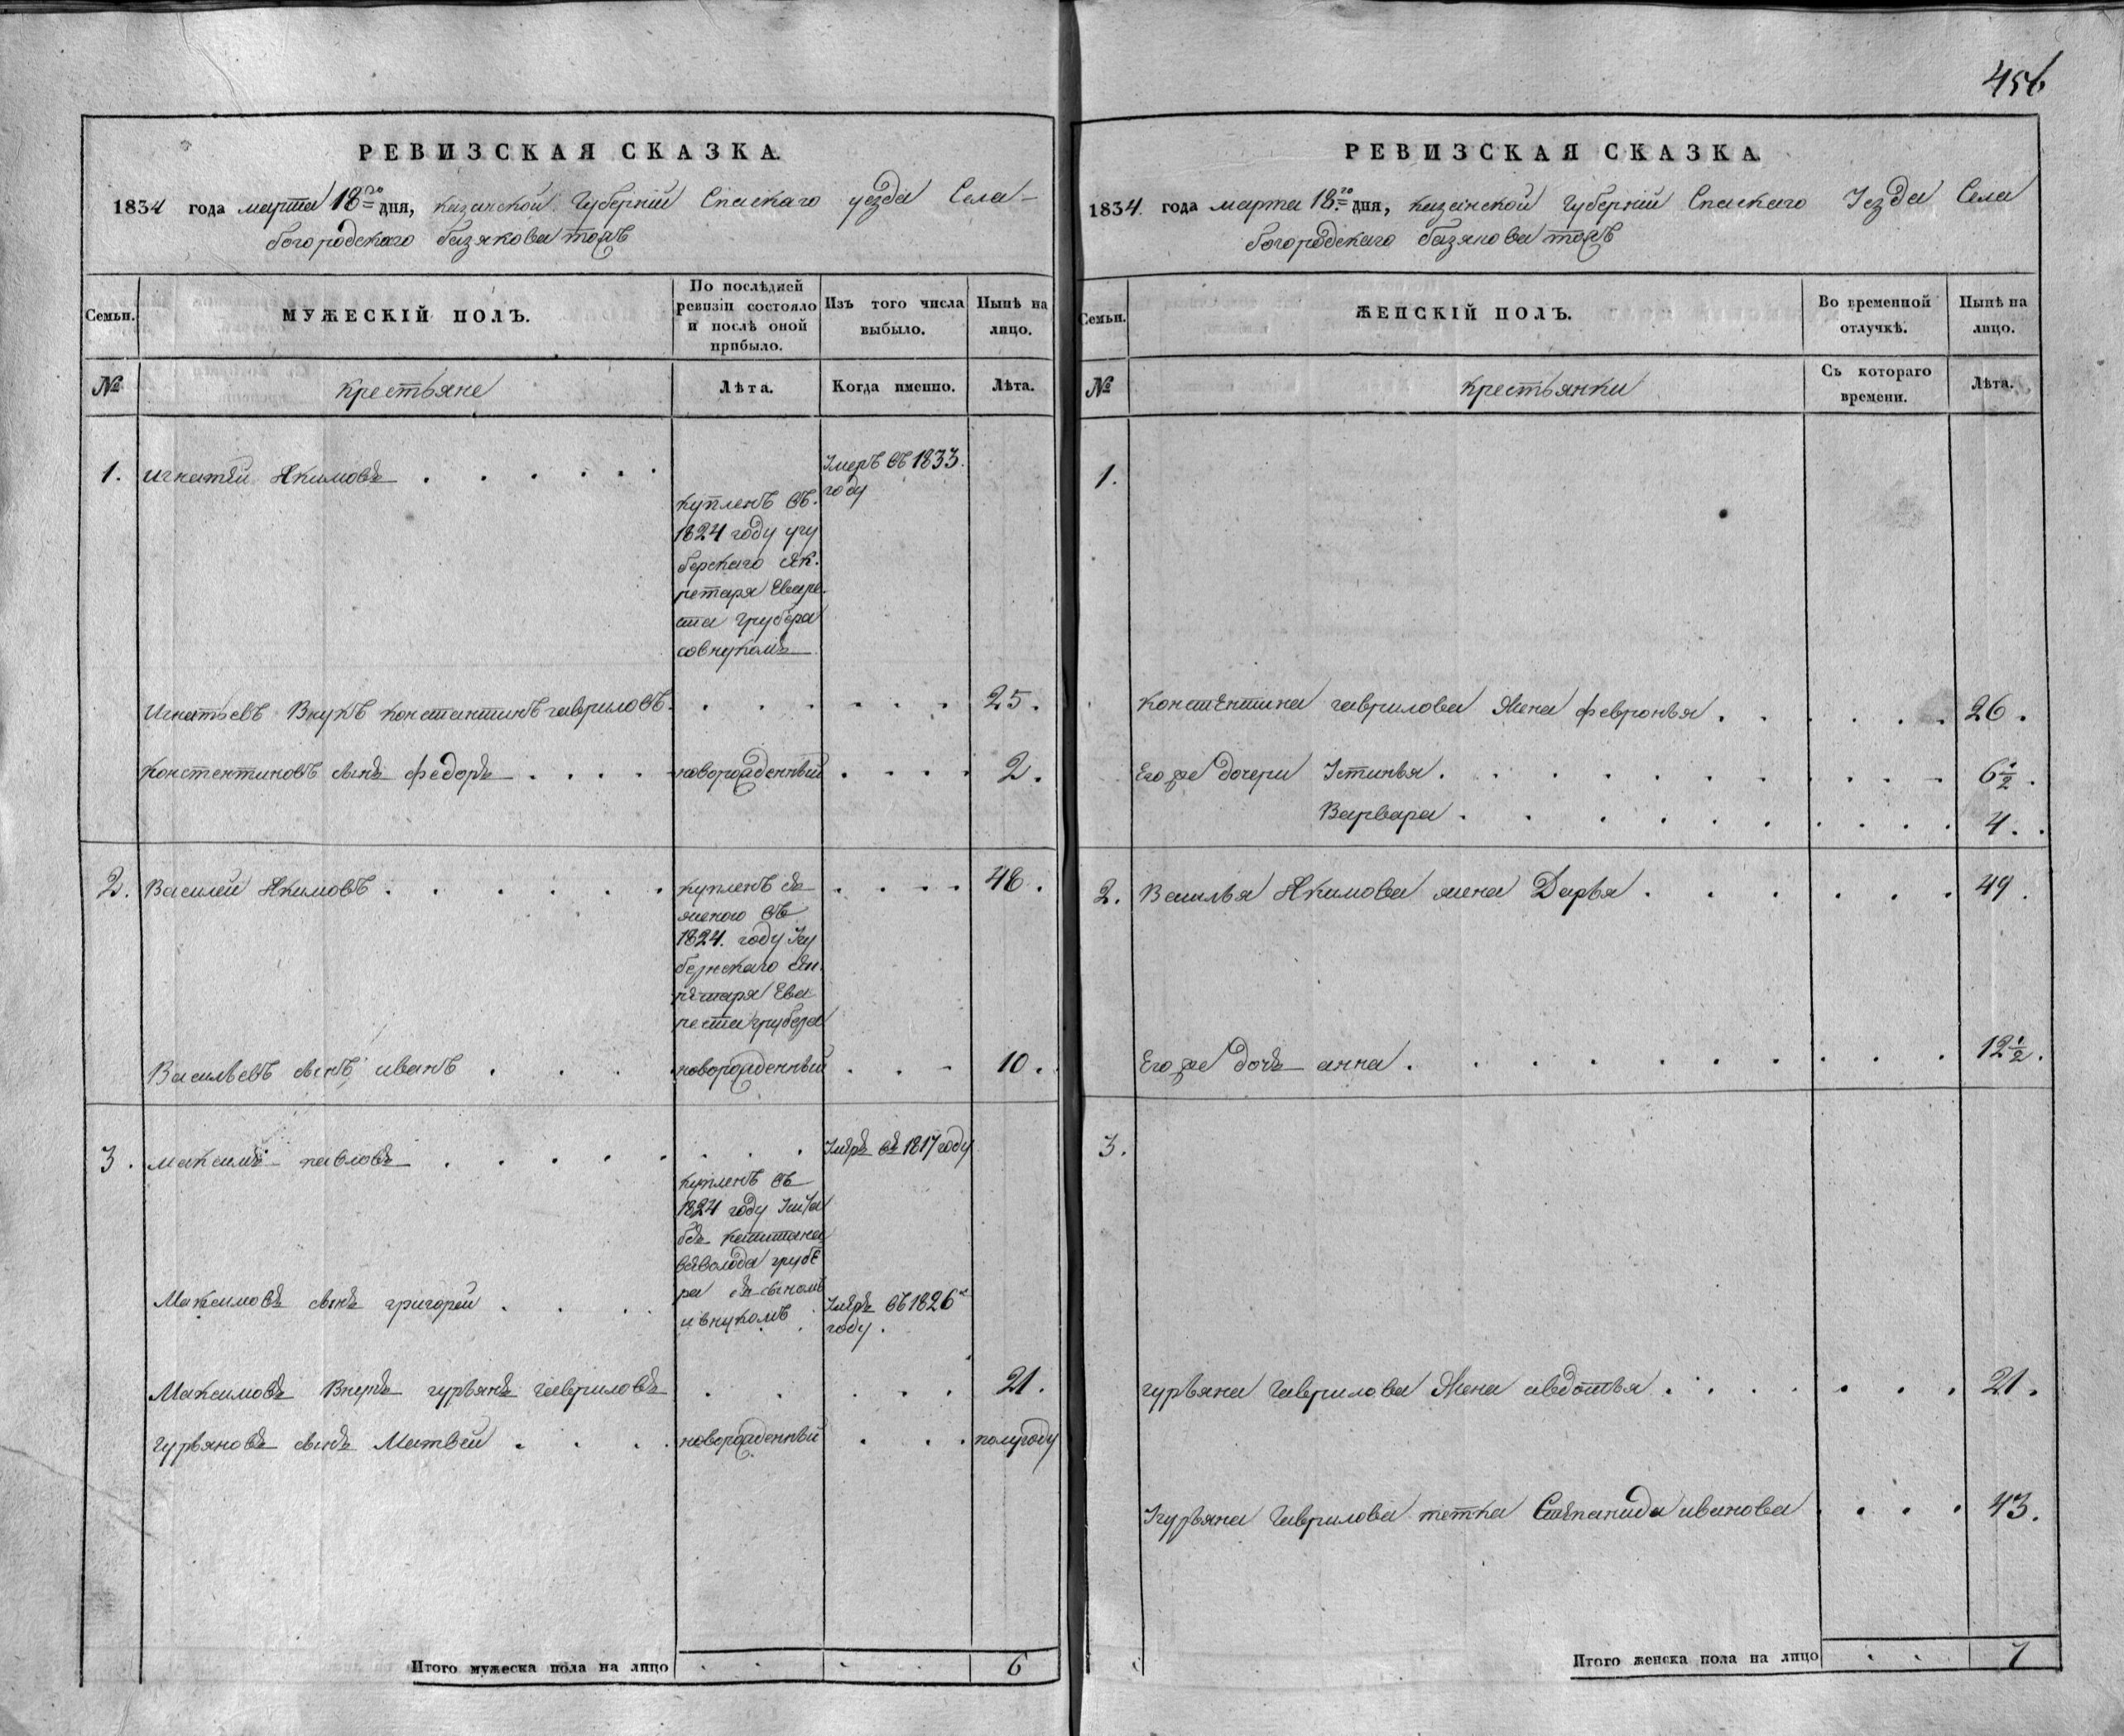 456
РЕВИЗСКАЯ СКАЗКА.
1834 года марта 18го дня, казанской Губернии Спаскаго уезда Села
богородскаго базякова тожъ
Семьи.
МУЖЕСКІЙ ПОЛЪ.
По послѣдней
ревизіи состояло
и послѣ оной
прибыло.
Изъ того числа
выбыло.
Нынѣ на
лицо.
№
крестьяне
Лѣта.
Когда именно.
Лѣта.
1. игнатей Якимовъ
Умеръ въ 1833.
году
купленъ въ
1824 году угу
берскаго сек.
ретаря Еваре
ста грубера
совнукомъ
Игнатьевъ Внукъ константинъ гавриловъ 25.
Констентиновъ сынъ федоръ новорожденный 2.
2. Василей Якимовъ 48.
купленъ съ
женою въ
1824. году Угу
бернскаго сек
ретаря Ева
реста грубера
Васильевъ сынъ иванъ новорожденный 10.
3. максимъ павловъ
Умеръ въ 1817 году
купленъ въ
1824 году Ушта
бсъ капитана
всеволода грубе
ра съ сыномъ
ивнукомъ
Максимовъ сынъ григорей
Умеръ въ 1826м
году.
Максимовъ Внукъ гурьянъ гавриловъ 21.
гурьяновъ сынъ Матвей новорожденный полугоду
Итого мужеска пола на лицо 6
РЕВИЗСКАЯ СКАЗКА
1834. года марта 18.го дня, казанской Губернии Спаскаго Уезда Села
богородскаго базякова тожъ
Семьи.
ЖЕНСКІЙ ПОЛЪ.
Во временной
отлучкѣ.
Нынѣ на
лицо.
№
крестьянки
Съ котораго
времени.
Лѣта.
1.
констентина гаврилова Жена февронья 26.
Его же дочери Устинья 6 1/2.
Варвара 4.
2. Василья Якимова жена Дарья 49.
Его же дочь анна 12 1/2.
3.
гурьяна гаврилова Жена авдотья 21.
Угурьяна гаврилова тетка Степанида иванова 43.
Итого женска пола на лицо 7